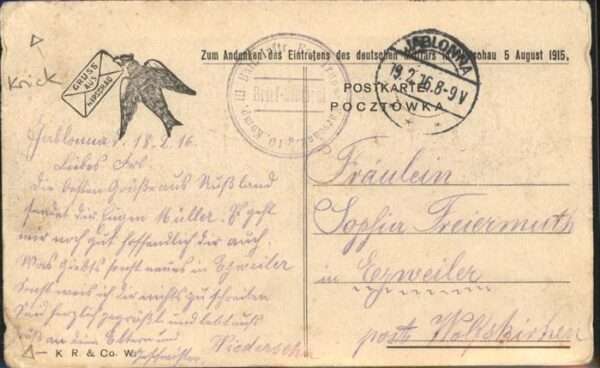 Krick
GRUSS
AUS
WARSCHAU
Zum Andenken des Eintretens des deutschen Militärs in Warschau 5 August 1915.
Brief-Stempel
JABLONNA
19.2.16.8-9V
POSTKARTE
POCZTÓWKA
Jablonna, 18.2.16
Liebes
Die besten Grüße aus Rußland
sendet dir Eugen Müller. Es geht
mir noch gut hoffendlich dir auch.
Was Giebts sonst neues in Eyweiler
Sonst weis ich dir nichts zu schreiben
Sei herzlich gegrüßt und lebt wohl
Gruß an deine Eltern und
Geschwister. Wiedersehn
Fräulein
Sophia Freiermuth
in Eyweiler
post Wolfskirchen
K R. & Co. W.